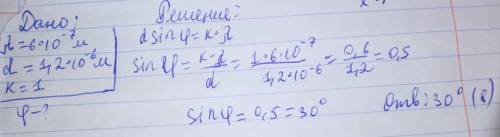 Дано: Решение:
λ=6·10⁻⁷м
d=1,2·10⁻⁶м
k=1
φ-?
d sinφ=k·λ
sinφ = k·λ/d = 1·6·10⁻⁷/1,2·10⁻⁶ = 0,6/1,2 = 0,5
sinφ=0,5=30°
Отв: 30° (в)